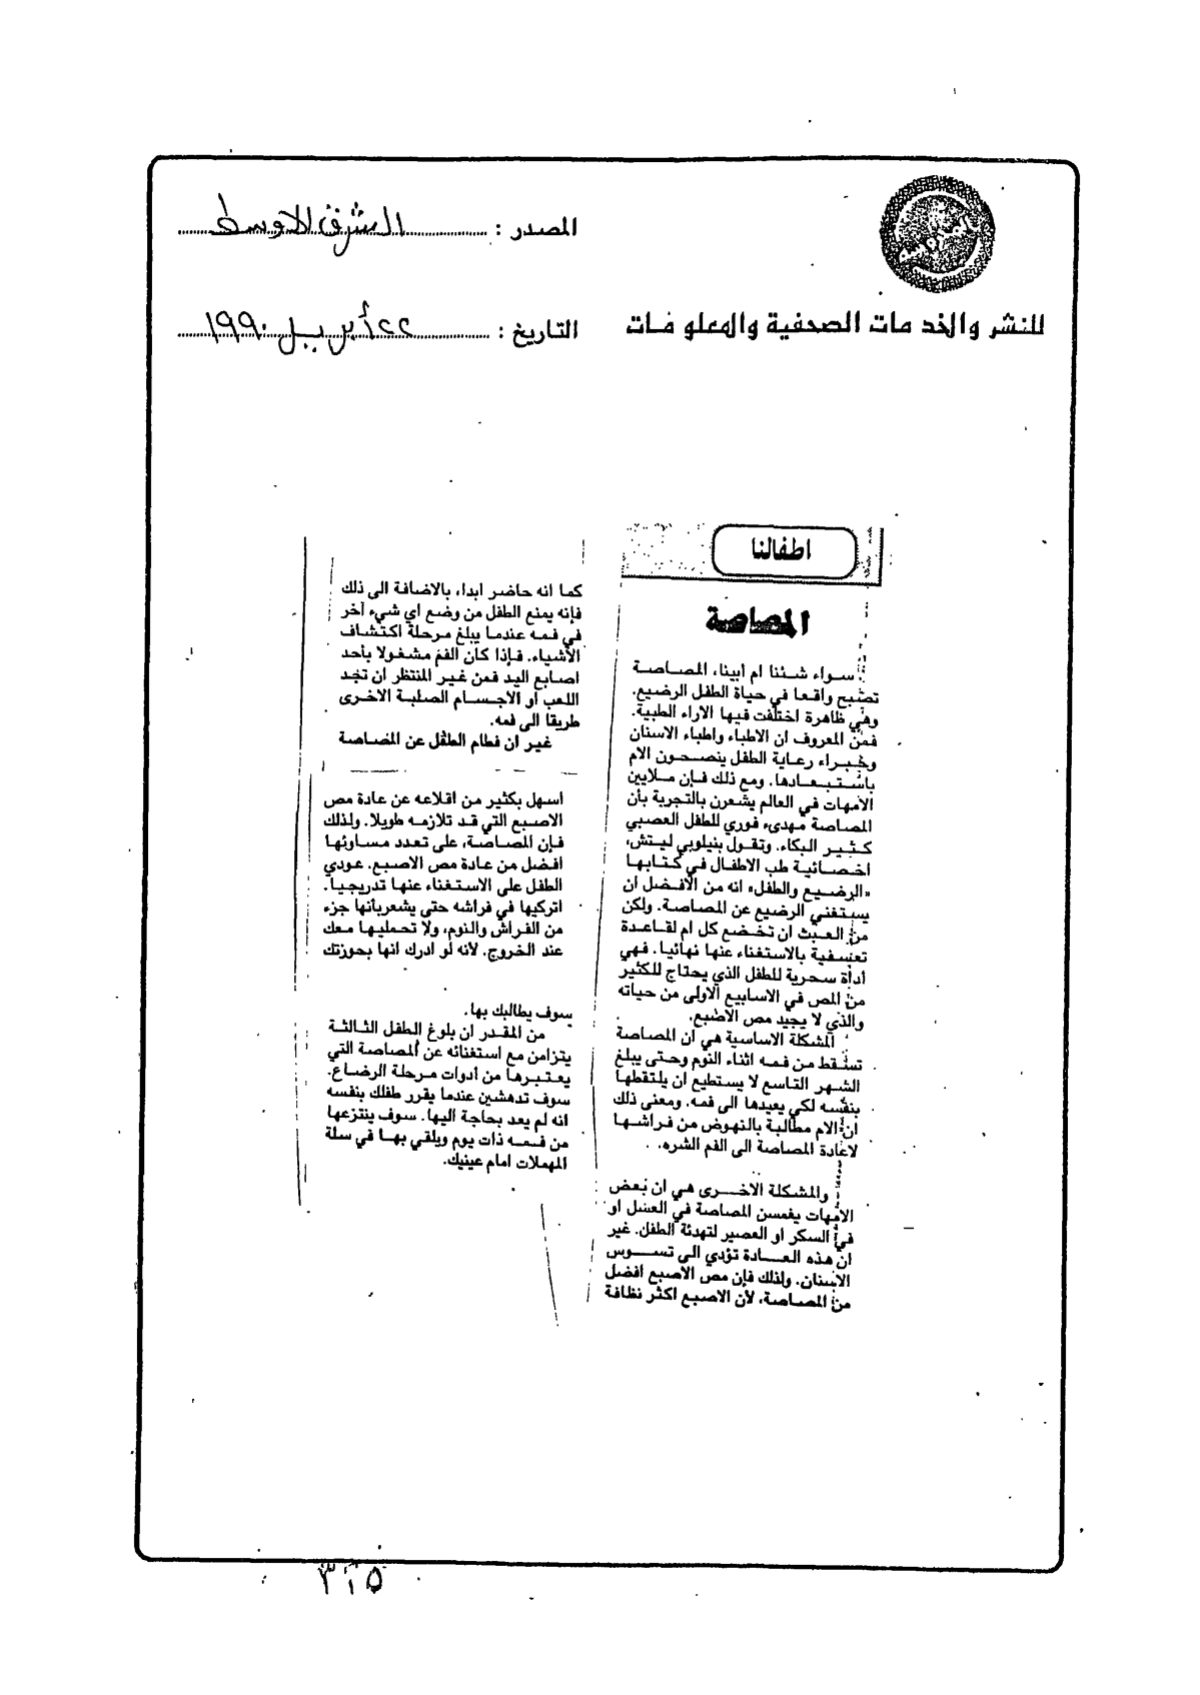 المصدر : الشرق الاوسط
للنشر والخدمات الصحفية والمعلومات
التاريخ : ٢٢ أبريل ١٩٩٠
اطفالنا
المصاصة
سواء شئنا ام ابينا، المصاصة
تصبح واقعا في حياة الطفل الرضيع.
وهي ظاهرة اختلفت فيها الاراء الطبية.
فمن المعروف ان الاطباء واطباء الاسنان
وخبراء رعاية الطفل ينصحون الام
باستبعادها. ومع ذلك فإن ملايين
الامهات في العالم يشعرن بالتجربة بأن
المصاصة مهدىء فوري للطفل العصبي
كثير البكاء. وتقول بنيلوبي ليتش،
اخصائية طب الاطفال في كتابها
«الرضيع والطفل» انه من الافضل ان
يستغني الرضيع عن المصاصة. ولكن
من العبث ان تخضع كل ام لقاعدة
تعسفية بالاستغناء عنها نهائيا. فهي
أداة سحرية للطفل الذي يحتاج للكثير
من المص في الاسابيع الاولى من حياته
والذي لا يجيد مص الاصبع.
المشكلة الاساسية هي ان المصاصة
تسقط من فمه اثناء النوم وحتى يبلغ
الشهر التاسع لا يستطيع ان يلتقطها
بنفسه لكي يعيدها الى فمه. ومعنى ذلك
ان الام مطالبة بالنهوض من فراشها
لاعادة المصاصة الى الفم الشره.
والمشكلة الاخرى هي ان بعض
الامهات يغمسن المصاصة في العسل او
في السكر او العصير لتهدئة الطفل. غير
ان هذه العادة تؤدي الى تسوس
الاسنان. ولذلك فإن مص الاصبع افضل
من المصاصة، لأن الاصبع اكثر نظافة
كما انه حاضر ابدا، بالاضافة الى ذلك
فإنه يمنع الطفل من وضع اي شيء آخر
في فمه عندما يبلغ مرحلة اكتشاف
الأشياء. فإذا كان الفم مشغولا بأحد
اصابع اليد فمن غير المنتظر ان تجد
اللعب أو الاجسام الصلبة الاخرى
طريقا الى فمه.
غير ان فطام الطفل عن المصاصة
أسهل بكثير من اقلاعه عن عادة مص
الاصبع التي قد تلازمه طويلا. ولذلك
فإن المصاصة، على تعدد مساوئها
افضل من عادة مص الاصبع. عودي
الطفل على الاستغناء عنها تدريجيا.
اتركيها في فراشه حتى يشعر بأنها جزء
من الفراش والنوم، ولا تحمليها معك
عند الخروج. لأنه لو ادرك انها بحوزتك
سوف يطالبك بها.
من المقدر ان بلوغ الطفل الثالثة
يتزامن مع استغنائه عن المصاصة التي
يعتبرها من أدوات مرحلة الرضاع.
سوف تدهشين عندما يقرر طفلك بنفسه
انه لم يعد بحاجة اليها. سوف ينتزعها
من فمه ذات يوم ويلقي بها في سلة
المهملات امام عينيك.
٣١٥